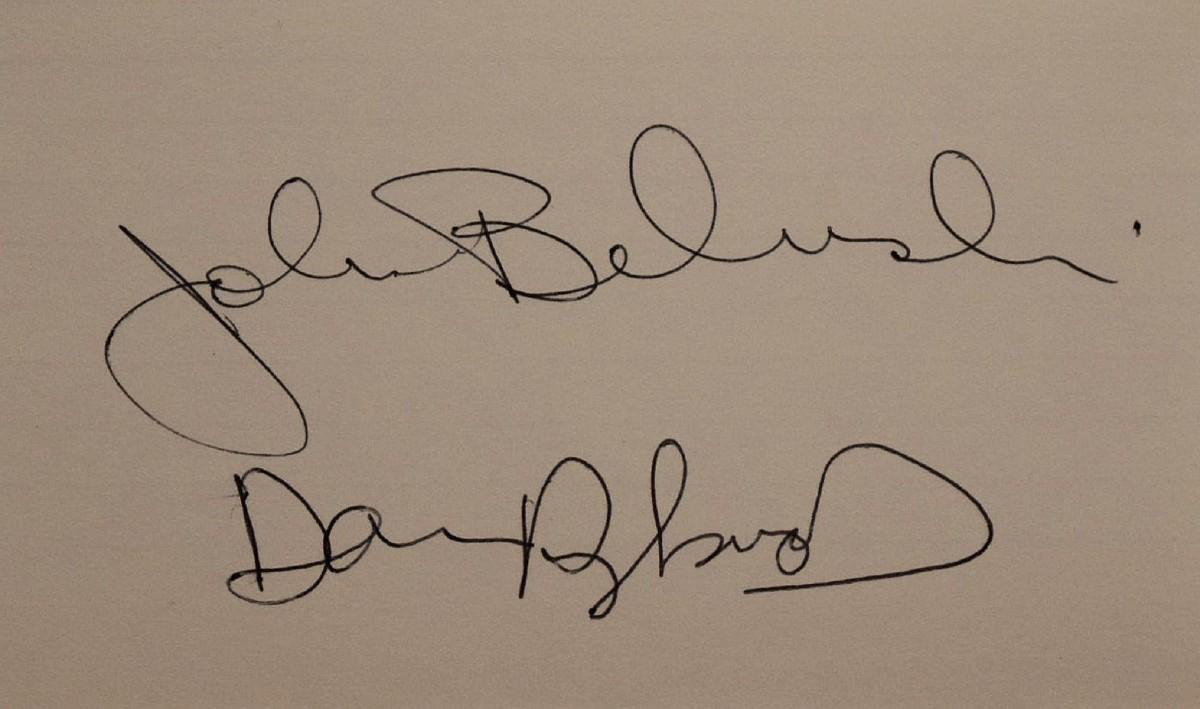 John Belushi
Dan Aykroyd